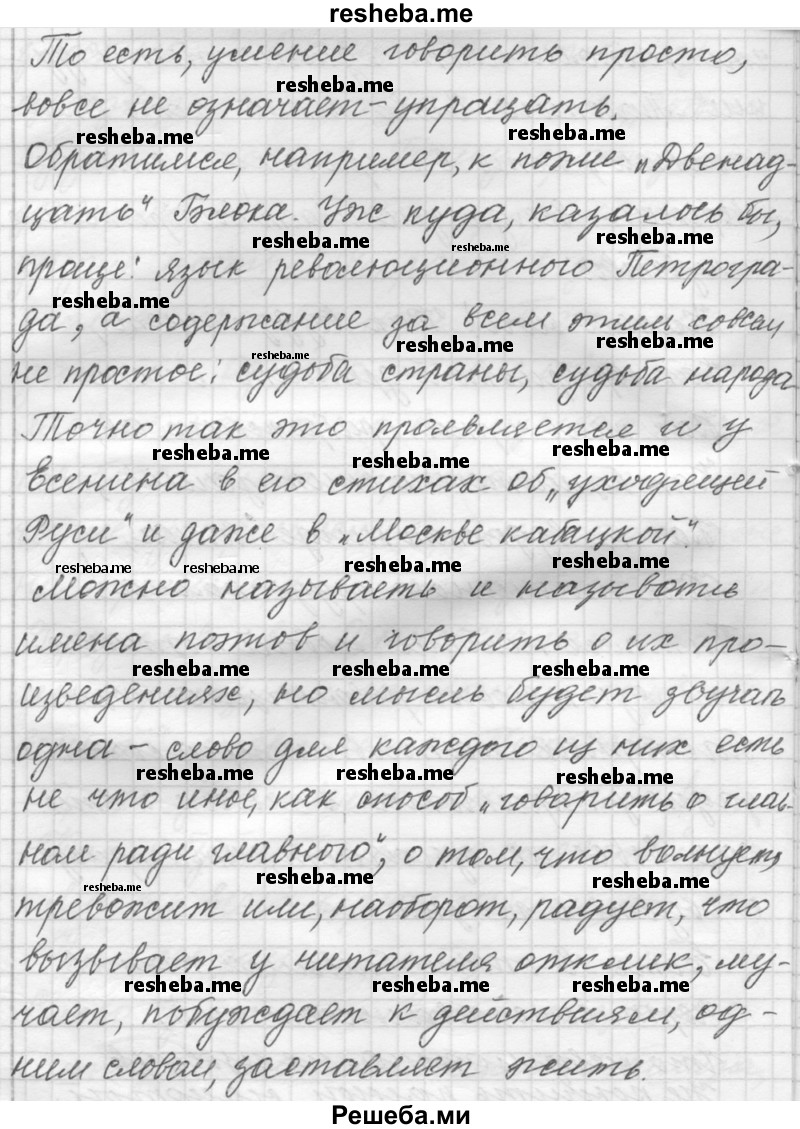 resheba.me
То есть, умение говорить просто,
resheba.me
вовсе не означает – упрощать.
resheba.me resheba.me
Обратимся, например, к поэме „Двенад-
цать“ Блока. Уж куда, казалось бы,
resheba.me resheba.me resheba.me
проще: язык революционного Петрогра-
resheba.me
да, а содержание за всем этим совсем
resheba.me resheba.me resheba.me
не простое: судьба страны, судьба народа
Точно так это проявляется и у
resheba.me resheba.me resheba.me
Есенина в его стихах об „уходящей
Руси“ и даже в „Москве кабацкой“.
resheba.me resheba.me resheba.me resheba.me
Можно называть и называть
имена поэтов и говорить о их про-
resheba.me resheba.me resheba.me
изведениях, но мысль будет звучать
одна – слово для каждого из них есть
resheba.me resheba.me resheba.me
не что иное, как способ „говорить о глав-
ном ради главного“, о том, что волнует,
resheba.me resheba.me resheba.me
тревожит или, наоборот, радует, что
вызывает у читателя отклик, му-
resheba.me resheba.me resheba.me
чает, побуждает к действиям, од-
ним словом, заставляет жить.
Решеба.ми